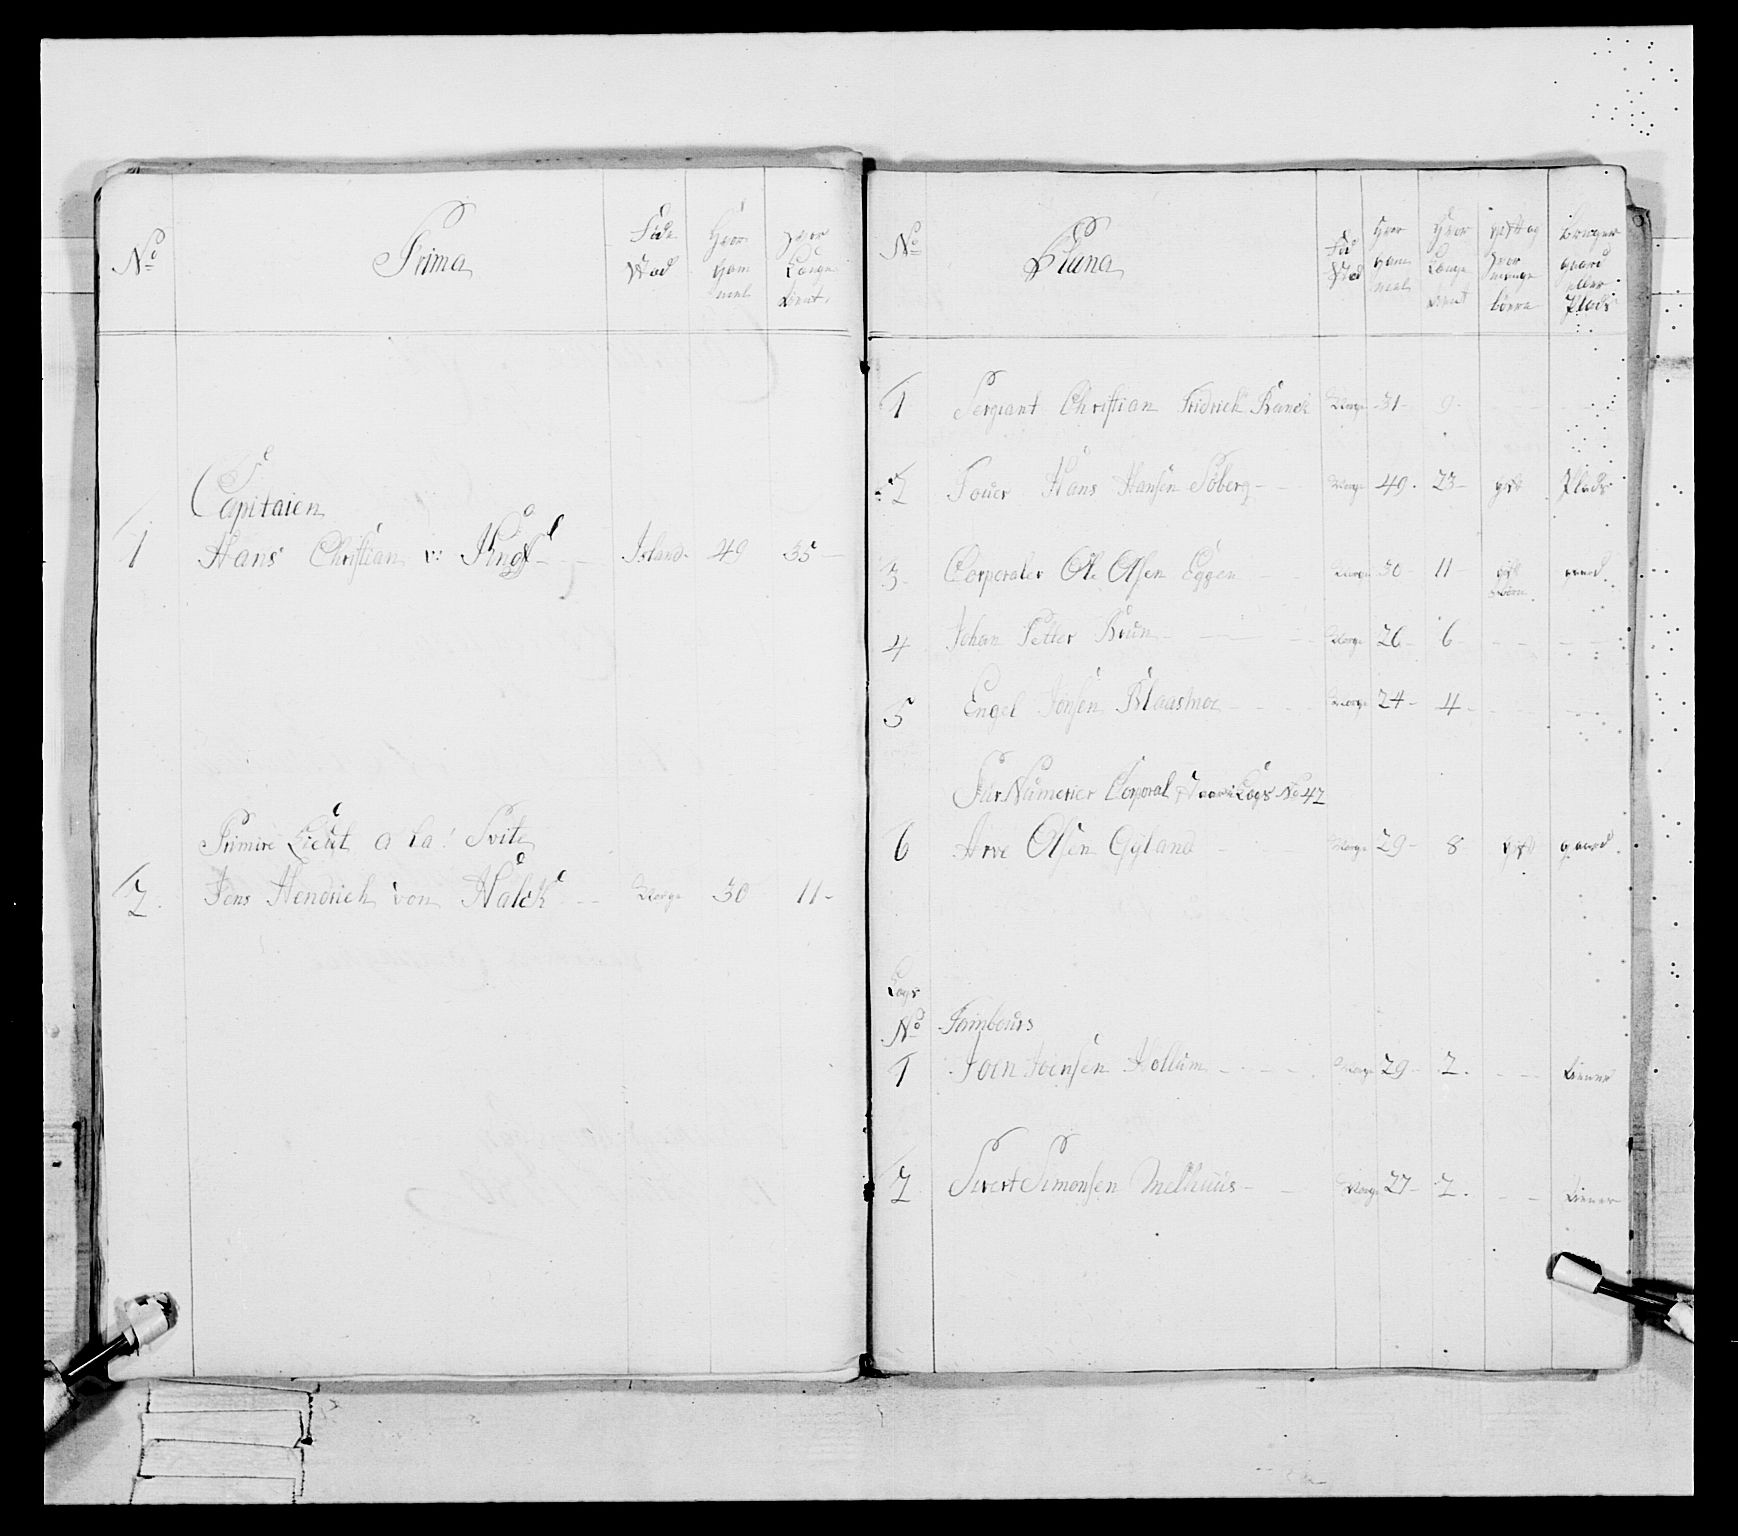 No Prima Føde Stad Hvor Gam mel Hvor Længe Tient
Capitaien
1 Hans Christian v: Knoff Island 49 35
Primire Lieut a la Svite
2 Jens Hendrich von Halck Norge 30 11
No Pluna Fød Stæd Hvor Gam mel Hvor Længe Tient gift og hvor mange børn Bruger gaard eller Plads
1 Sergiant Christian Fridrich Banck Norge 31 9
2 Fouer Hans Hansen Søberg Norge 49 23 gift Plads
3 Corporaler Ole Olsen Eggen Norge 30 11 gift gaard
4 Johan Petter Brun Norge 26 6
5 Engel Jonsen Blaasmoe Norge 24 4
Sur Numerier Corporal Lægs No 42
6 Arve Olsen Gyland Norge 29 8 gift gaard
Lægs
No Tambours
1 Join Joensen Hollum Norge 29 2 tiener
2 Sivert Simonsen Melhuus Norge 27 2 tiener